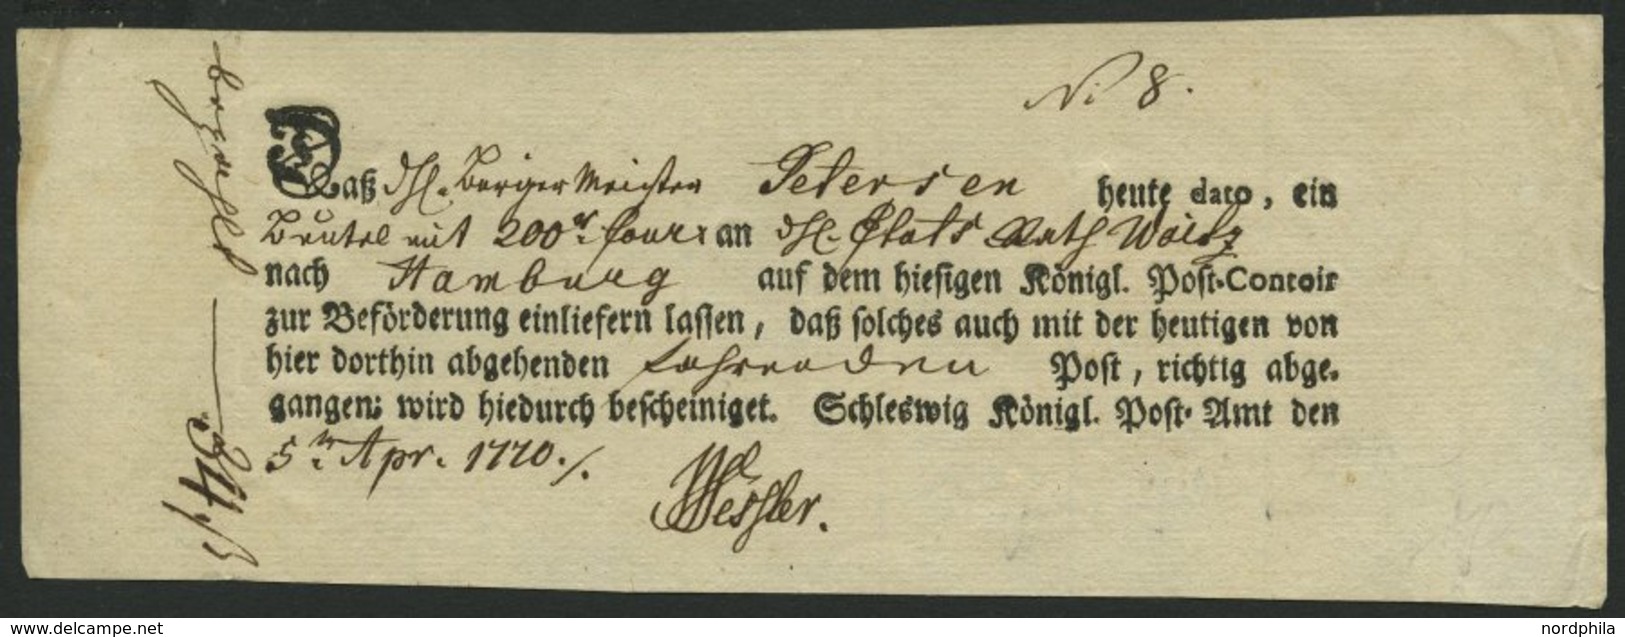 No 8.
Daß Hl. Burger Meister Petersen heute dato, ein
Beutel mit 200 Cour: an Hl. Etats Rath
nach Hamburg auf dem hiesigen Königl. Post-Contoir
zur Beförderung einliefern lassen, daß solches auch mit der heutigen von
hier dorthin abgehenden fahrenden Post, richtig abge-
gangen: wird hiedurch bescheiniget. Schleswig Königl. Post-Amt den
5 Apr. 1770./.
Wessler.
bezahlt
www.delcampe.net
nordphila